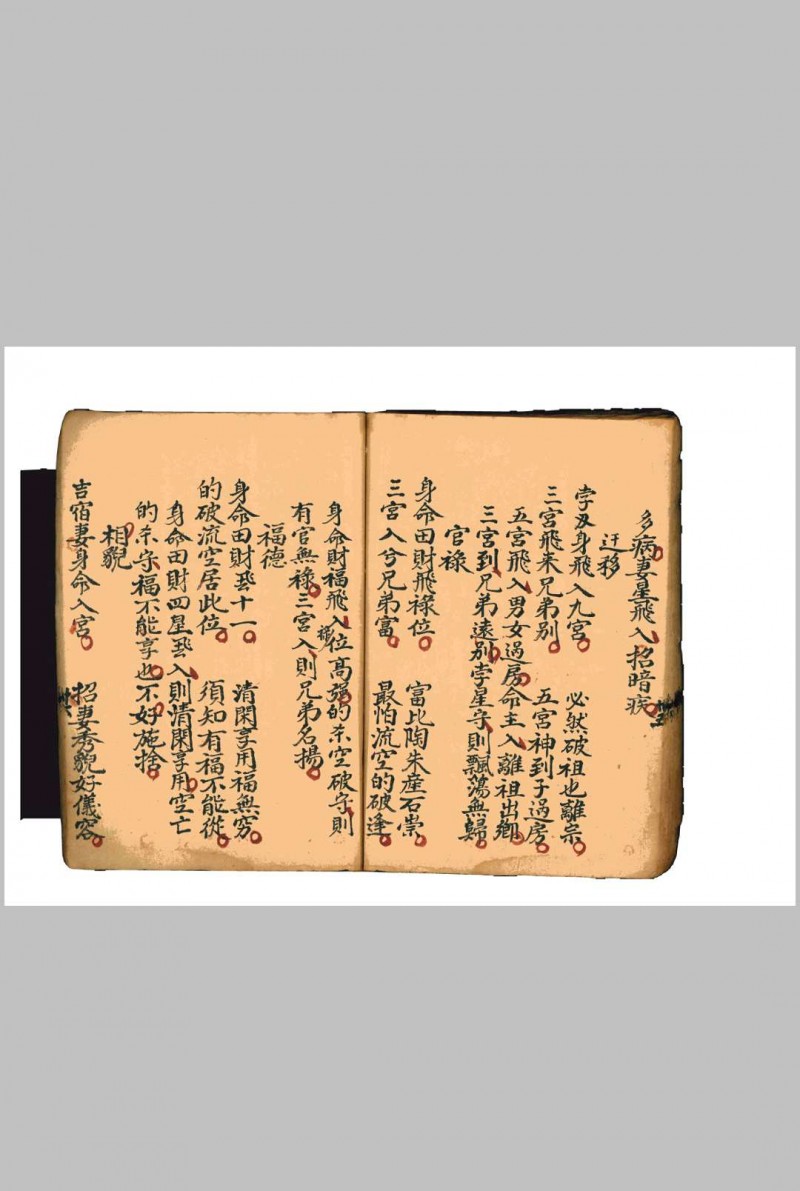 多病妻星飛入招暗疾
迁移
孛及身飛入九宮 必然破祖也離宗
三宮飛来兄弟別 五宮神到子過房
五宮飛入男女過房命主入離祖出鄉
三宮到兄弟遠別孛星守則飄蕩無歸
官祿
身命田財飛祿位 富比陶朱產石崇
三宮入兮兄弟富 最怕流空的破逢
身命財福飛入祿位高強的杀空破守則
有官無祿三宮入則兄弟名揚
福德
身命田財飛十一 清閑享用福無窮
的破流空居此位 須知有福不能從
身命田財四星飛入則清閑享用空亡
的杀守福不能享也不好施捨
相貌
吉宿妻身命入宮 招妻秀貌好儀容